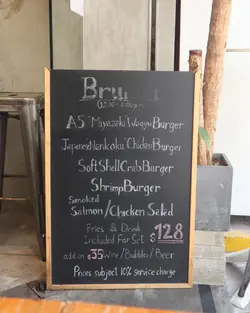 A5 Miyazaki Wagyu Burger
Japanese Nankotsu Chicken Burger
Soft Shell Crab Burger
Shrimp Burger
Smoked
Salmon/Chicken Salad
Fries & Drink
Included For Set $128
add on $35 Wine/Bubbles/Beer
Prices subject 10% service charge